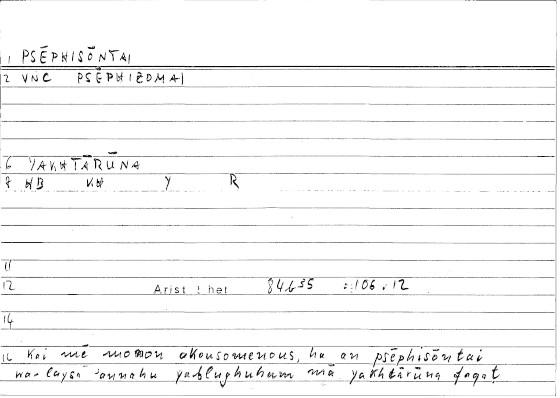 1 PSĒPHISŌNTAI
2 VNC PSĒPHIZOMAI
6 YAKHTĀRŪNA
8 WB KH Y R
11
12 Arist : het 84b35 : 106.12
14
16 Kai mē monon akousomenous, ha an psēphisōntai
wa-laysa annahu yablughuhum mā yakhtārūna faqaṭ